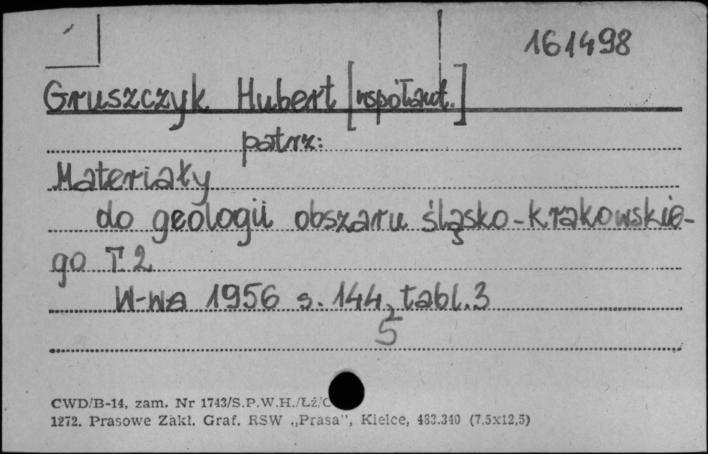 161498
Gruszczyk Hubert [współaut.]
patrz:
Materiały
do geologii obszaru śląsko-krakowskie-
go T. 2
W-wa 1956 s. 144, tabl. 3
5
CWD/B-14, zam. Nr 1743/S.P.W.H./Łź/C
1272. Prasowe Zakł. Graf. RSW „Prasa", Kielce, 483.340 (7,5x12,5)